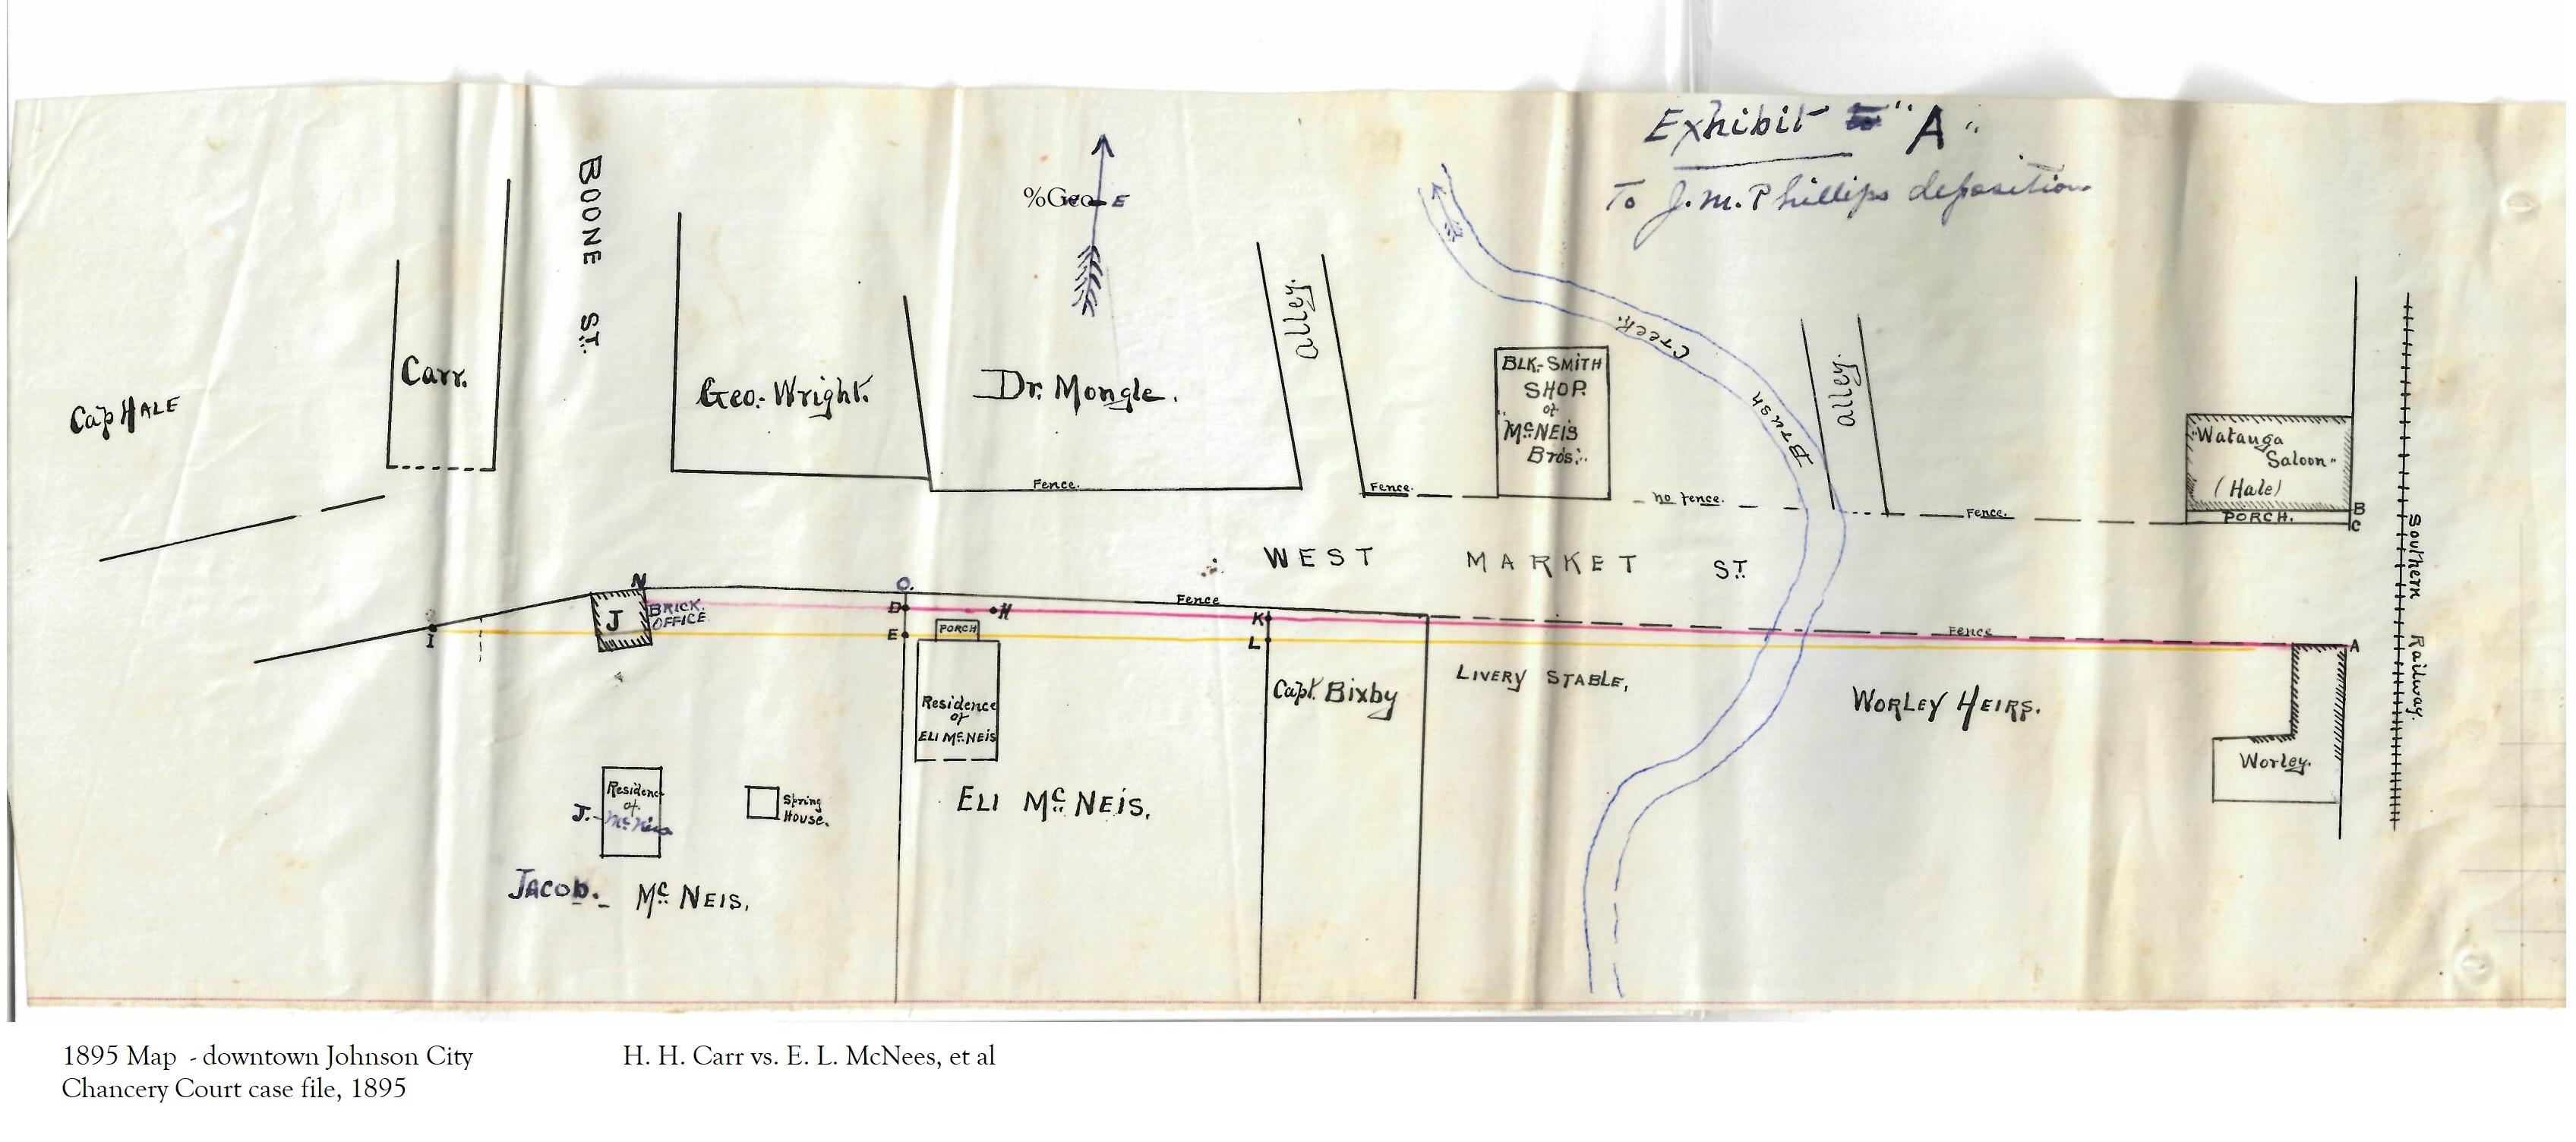 Exhibit "A"
To J.M. Phillips deposition
BOONE ST.
%Geo E
alley.
Creek.
Brush
alley.
Cap HALE
Carr.
Geo. Wright.
Dr. Mongle.
BLK-SMITH
SHOP.
of
McNEIS
Bros.
"Watauga
Saloon"
(Hale)
PORCH.
B
C
Fence.
Fence.
no fence.
Fence.
WEST MARKET ST.
Southern Railway.
N
O.
J
BRICK.
OFFICE
D
H
Fence
K
Fence
A
I
E
PORCH
L
LIVERY STABLE,
Capt. Bixby
WORLEY HEIRS.
Residence
of
ELI McNEIS
Worley.
Residence
of
J. McNeis
Spring
House.
ELI McNEIS.
JACOB. McNEIS.
1895 Map - downtown Johnson City
Chancery Court case file, 1895
H. H. Carr vs. E. L. McNees, et al